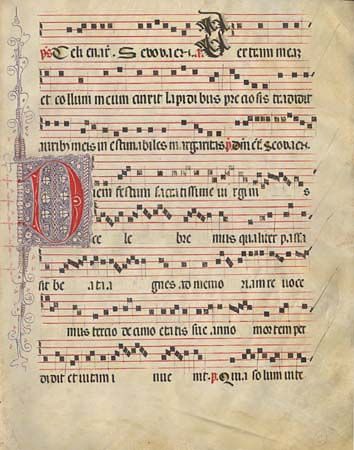 ps Celi enarr. Seuouae. a. Dexteram meam
et collum meum cinxit lapidibus preciosis tradidit
auribus meis in estimabiles margaritas. ps Dni est Seuouae.
Diem festum sacratissime virgini s
ce le bre mus qualiter passa
sit be ata ag nes ad memo riam re voce
mus tercio de cimo etatis sue anno mortem per
didit et vitam i nue nit. Quia solum vite